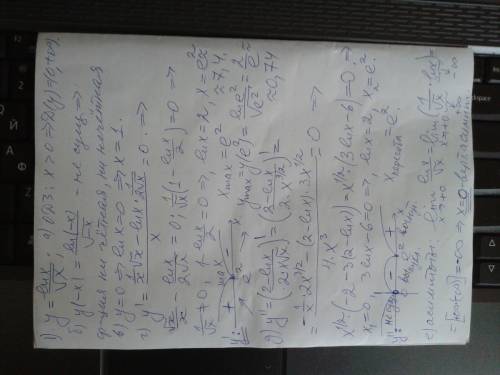 1) y = lnx/√x; а) ОДЗ: x > 0 => D(y) = (0; +∞).
б) y(-x) = ln(-x)/√-x - не сущ. =>
ф-ция ни чётная, ни нечётная
в) y=0 => lnx=0 => x=1.
г) y' = (1/x·√x - lnx·1/2√x)/x = 0. =>
√x/x - lnx/2√x = 0; 1/√x(1 - lnx/2) = 0 =>
1/√x ≠ 0, 1 - lnx/2 = 0 =>, lnx = 2, x = e² ≈
≈ 7,4.
y': + max - x
e²
xmax = e²
ymax = y(e²) = lne²/√e² = 2/e ≈
≈ 0,74
y'' = ((2-lnx)/2x√x)' = ((2-lnx)/2·x^3/2)' =
= (-1/x·2x^3/2 - (2-lnx)·3x^1/2)/4·x³ = 0 =>
x^1/2(-2-3(2-lnx)) = x^1/2(3lnx-6) = 0 =>
x₁=0, 3lnx-6=0 =>, lnx=2, x₂=e².
e²
xперегиба = e².
е) асимптоты: lim x→+0 lnx/√x = lim x→+0 (1/√x · lnx) =
+∞ -∞
= [+∞·(-∞)] = -∞ => x=0